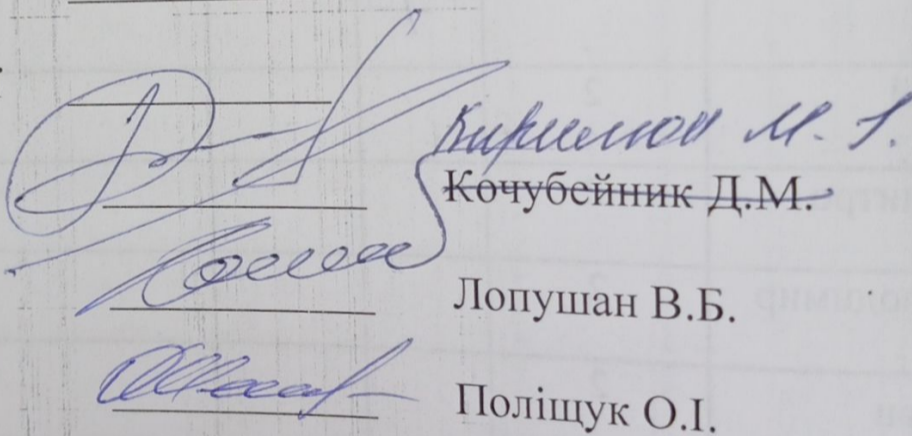 М. І.
Кочубейник Д.М.
Лопушан В.Б.
Поліщук О.І.